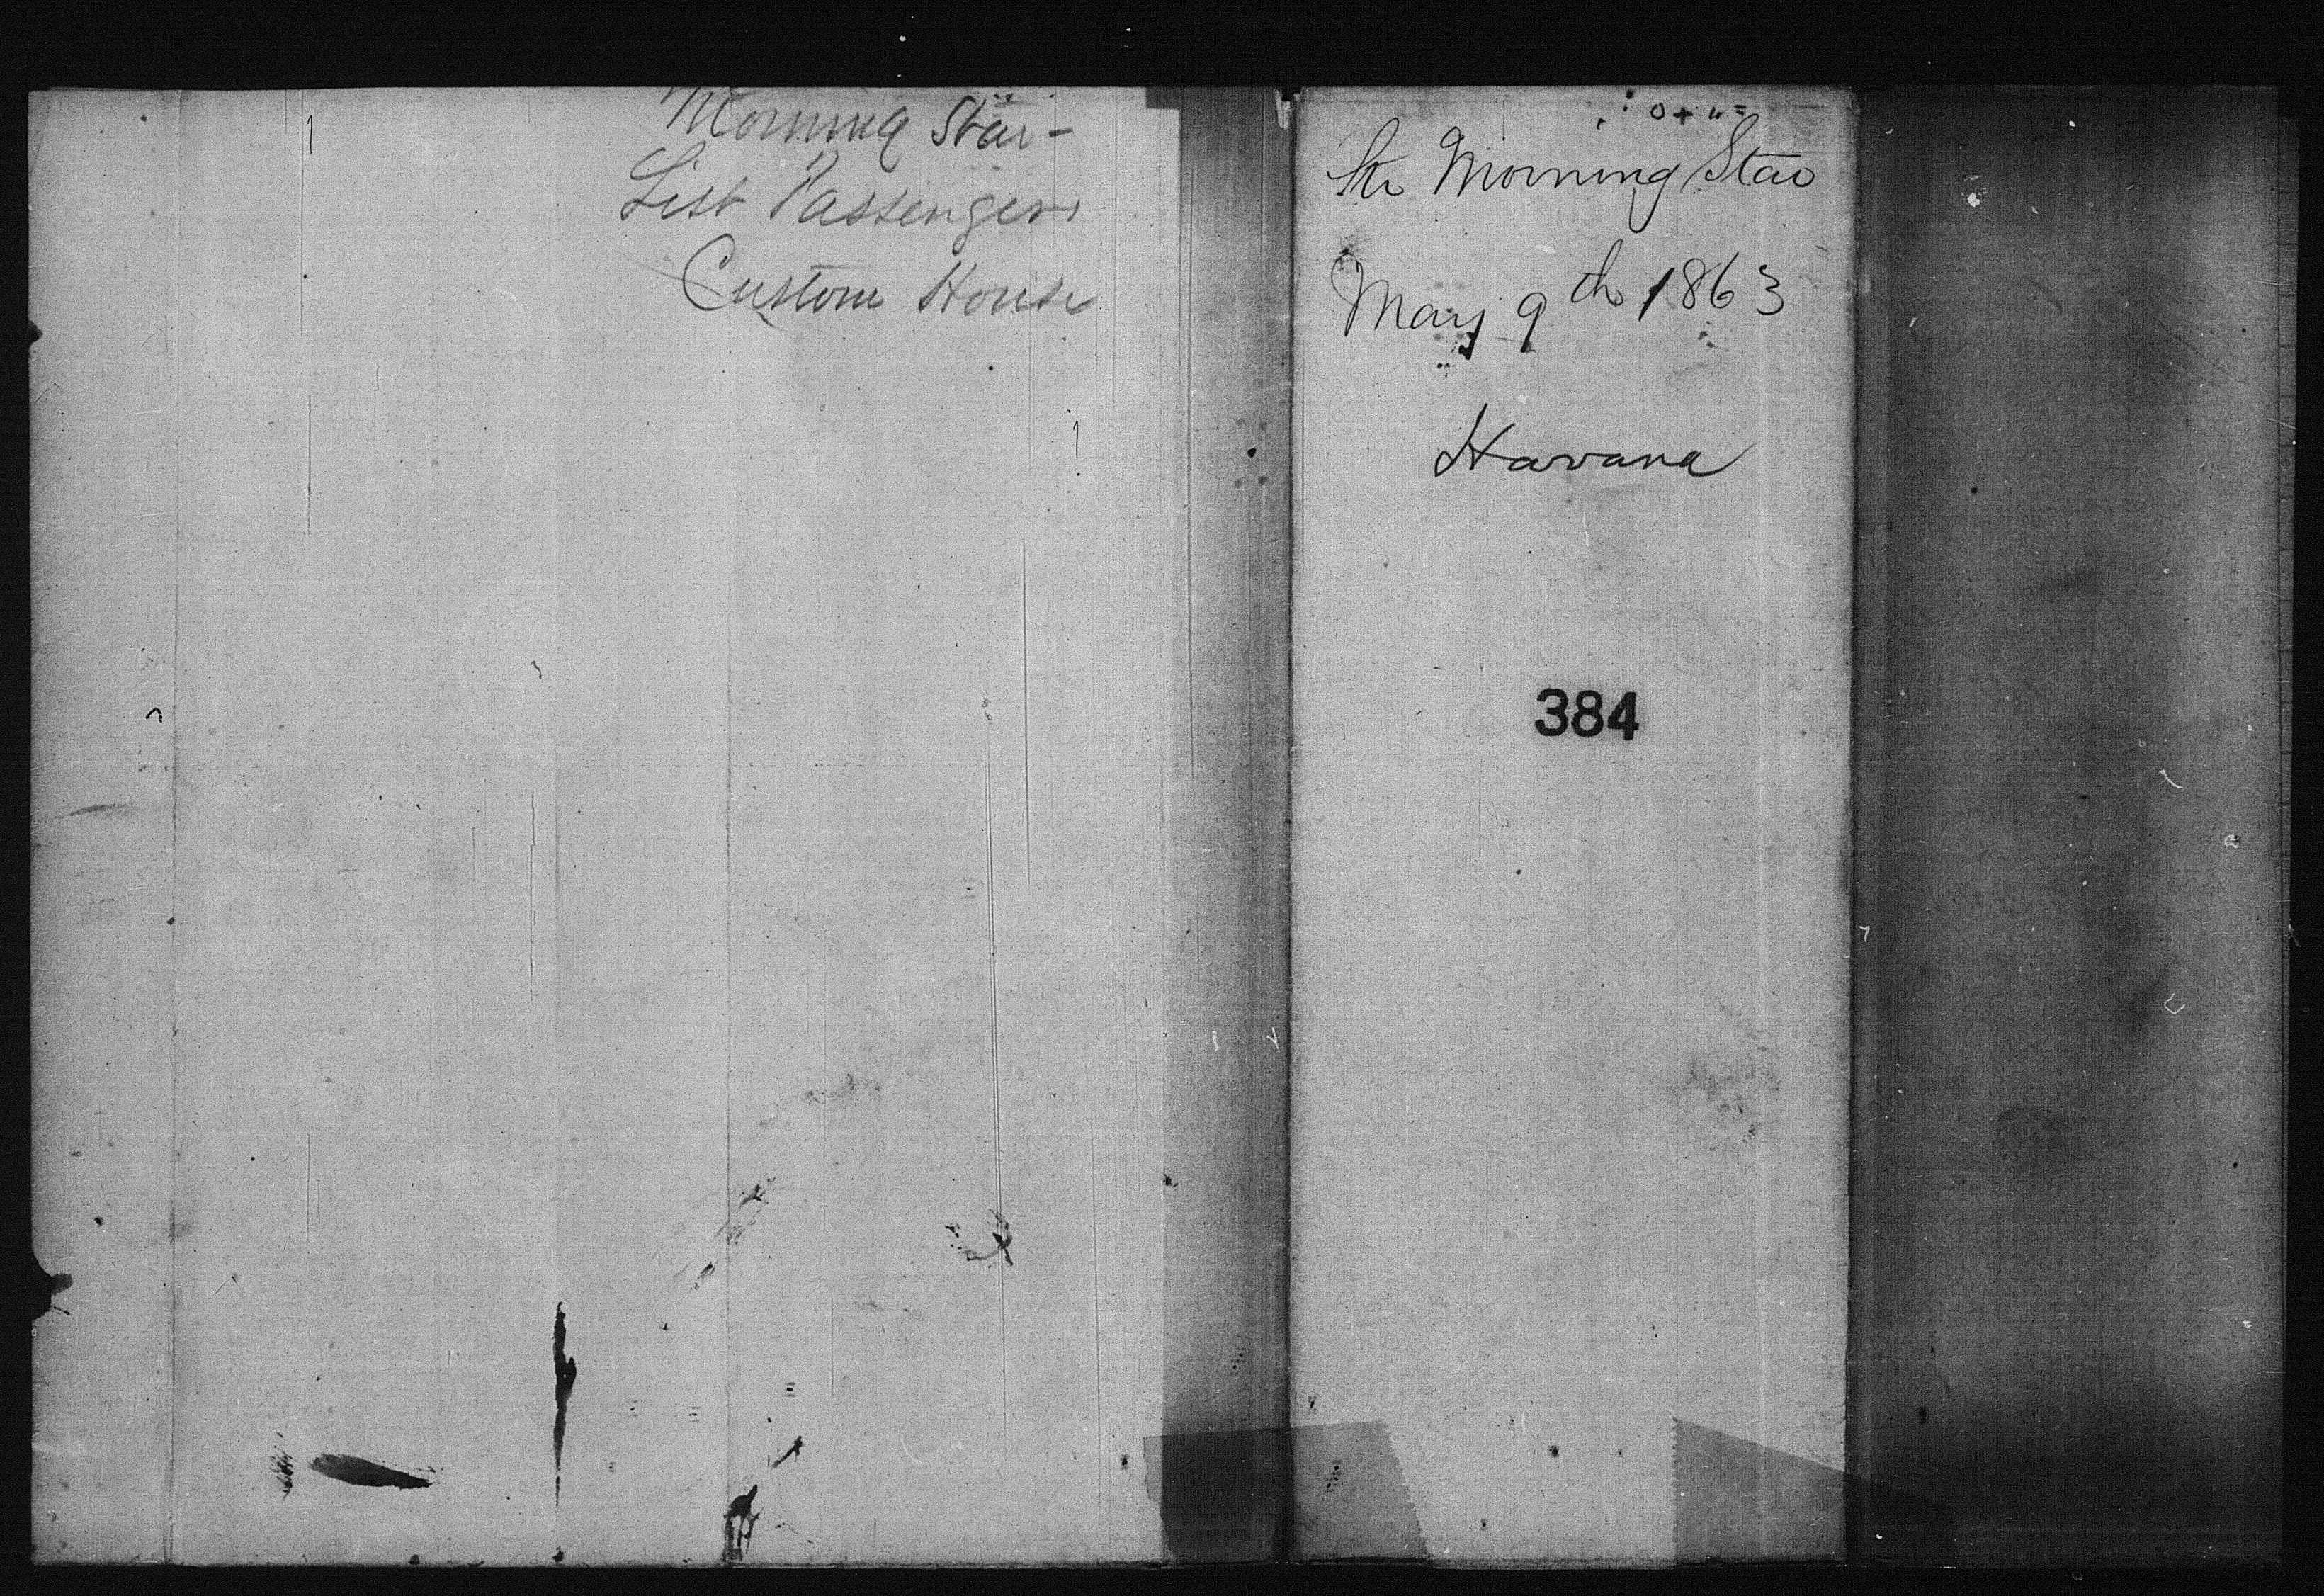 Morning Star -
List Passengers
Custom House
Str Morning Star
May 9th 1863
Havana
384